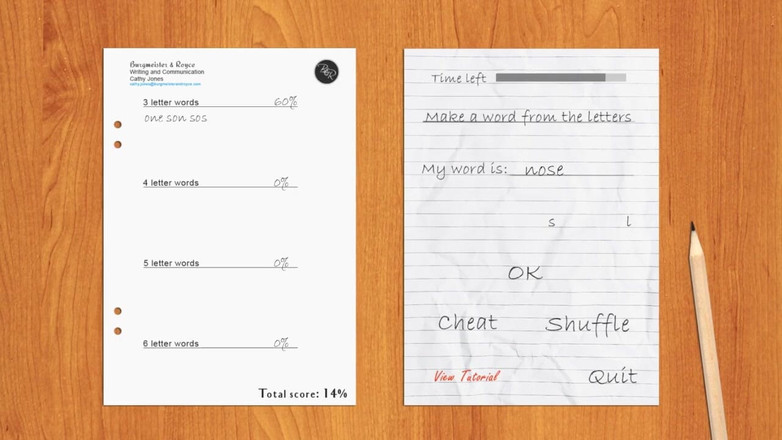 Burgmeister & Royce
Writing and Communication
Cathy Jones
cathy.jones@burgmeisterandroyce.com
3 letter words 60%
one son sos
4 letter words 0%
5 letter words 0%
6 letter words 0%
Total score: 14%
B&R
Time left
Make a word from the letters
My word is: nose
s l
OK
Cheat Shuffle
View Tutorial Quit